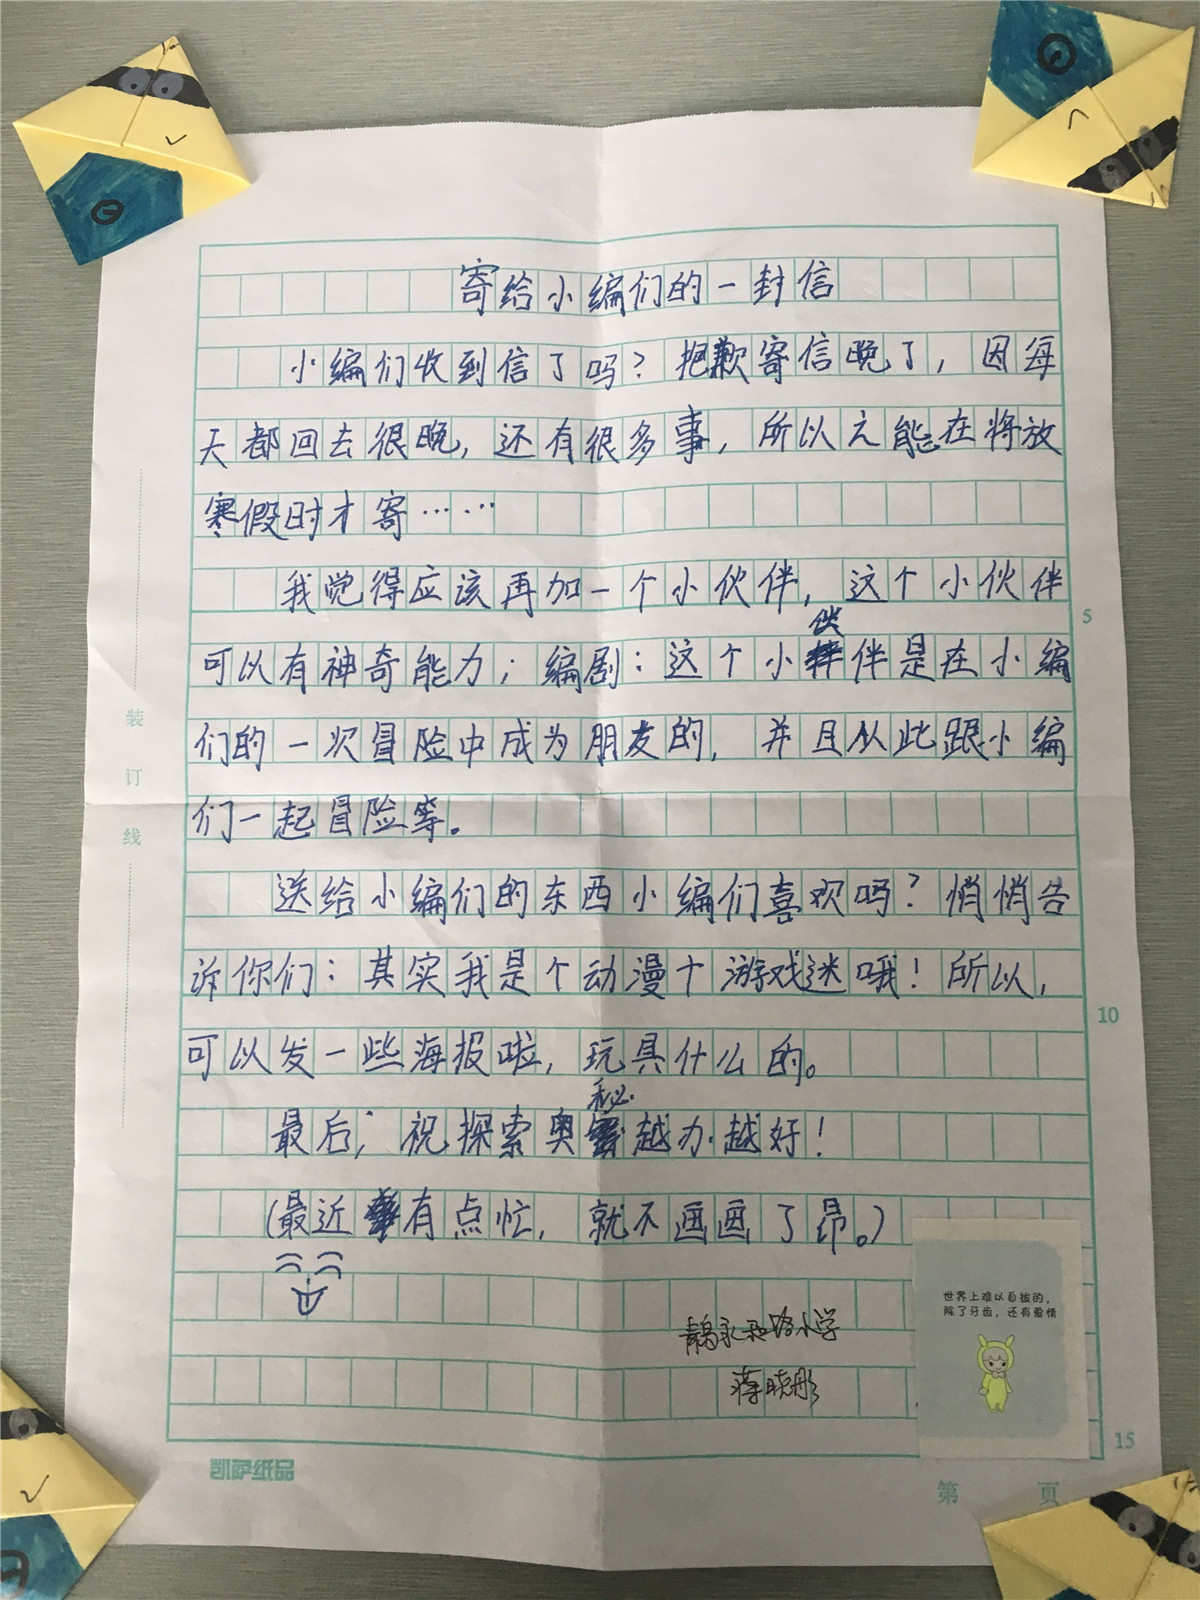 寄给小编们的一封信
小编们收到信了吗？抱歉寄信晚了，因每
天都回去很晚，还有很多事，所以才能在将放
寒假时才寄……
我觉得应该再加一个小伙伴，这个小伙伴
可以有神奇能力；编剧：这个小伙伴是在小编
们的一次冒险中成为朋友的，并且从此跟小编
们一起冒险等。
送给小编们的东西小编们喜欢吗？悄悄告
诉你们：其实我是个动漫十游戏迷哦！所以，
可以发一些海报啦，玩具什么的。
最后，祝探索奥秘越办越好！
（最近有点忙，就不画画了昂。）
青岛永和路小学
蒋晓彤
世界上难以自拔的，
除了牙齿，还有爱情
装
订
线
5
10
15
凯萨纸品
第 页